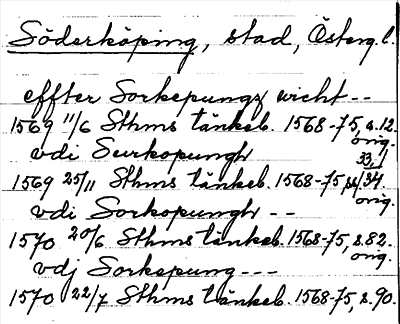 Söderköping, stad, Österg. l.
effter Sorkepungz wicht --
1569 11/6 Sthms tänkeb. 1568-75, s. 12.
orig.
vdi Surkopungh
33,1
1569 25/11 Sthms tänkeb. 1568-75, s. 34.
orig.
vdi Sorkopungh --
1570 20/6 Sthms tänkeb. 1568-75, s. 82.
orig.
vdj Sorkepung ---
1570 22/7 Sthms tänkeb. 1568-75, s. 90.